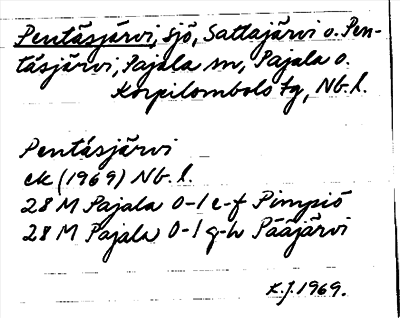 Pentäsjärvi, sjö, Sattajärvi o. Pen-
täsjärvi, Pajala sn, Pajala o.
Korpilombolo tg, Nb. l.
Pentäsjärvi
ek (1969) Nb. l.
28 M Pajala 0-1 e-f Pimpiö
28 M Pajala 0-1 g-h Pääjärvi
K.J. 1969.